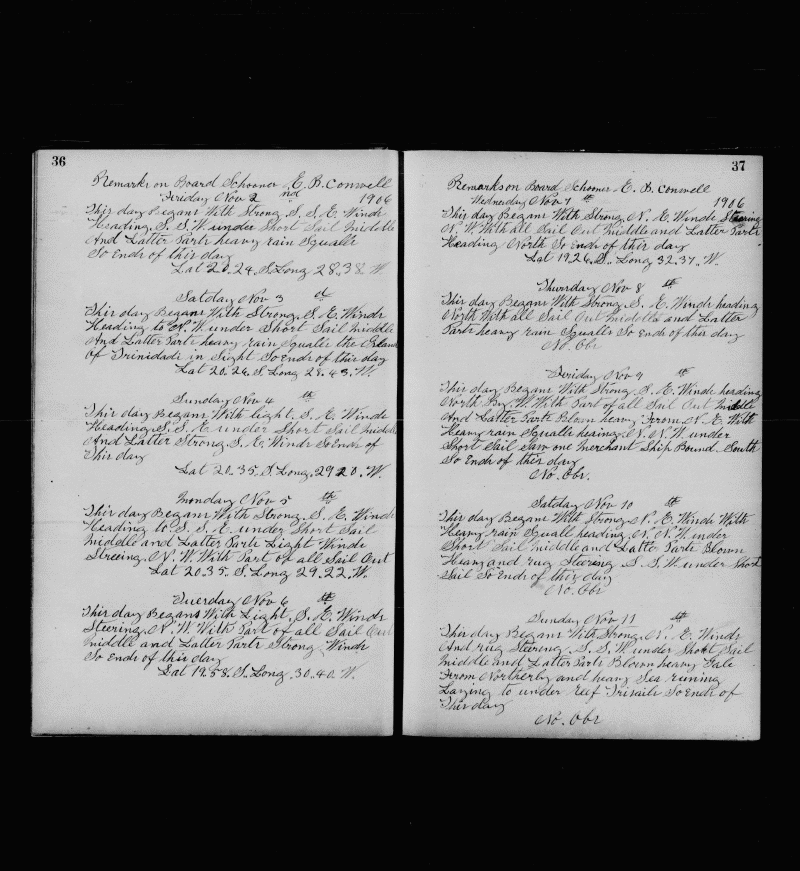 36
Remarks on Board Schooner E. B. Conwell
Friday Nov 2 nd 1906
This day Begans With Strong S. S. E. Winds
Heading S. S. W under Short Sail middle
And Latter Parts heavy rain Squalls
So Ends of this day
Lat 20.24. S. Long 28.38 W.
Satday Nov 3 d
This day Begans With Strong S E. Winds
Heading to N. W under Short Sail middle
And Latter Parts heavy rain Squalls the Island
of Trinidadi in Sight So Ends of this day
Lat 20.26. S. Long 28.43. W.
Sunday Nov 4 th
This day Begans With Light. S. E. Winds
Heading. S. S. E under Short Sail middle
And Latter Strong. S. E. Winds So Ends of
This day
Lat 20.35. S. Long. 29 20. W.
Monday Nov 5 th
This day Begans With Strong. S. E. Winds
Heading to S. S. E. under Short Sail
middle and Latter Parts Light Winds
Streeing. N. W. With Part of all Sail Out
Lat 20.35. S. Long 29.22. W.
Tuesday Nov 6 th
This day Begans With Light. S. E. Winds
Steering. N. W. With Part of all Sail Out
middle and Latter Parts Strong Winds
So Ends of this day
Lat 19.58. S. Long. 30.40. W.
37
Remarks on Board Schooner E. B. Conwell
Wednesday Nov 7 th 1906
This day Begans With Strong. N. E. Winds Steering
N. W. With all Sail Out middle and Latter Parts
Heading North So Ends of this day
Lat 19.26. S. Long 32.37. W.
Thursday Nov 8 th
This day Begans With Strong. S. E. Winds heading
North With all Sail Out middle and Latter
Parts heavy rain Squalls So Ends of this day
No. Obs
Friday Nov 9 th
This day Begans With Strong. S. E. Winds heading
North By. W. With Part of all Sail Out middle
And Latter Parts Blown heavy From N. E. With
Heavy rain Squalls heaing. N. N. W. under
Short Sail Saw one merchant Ship Bound South
So Ends of this day
No. Obs.
Satday Nov 10 th
This day Begans With Strong. N. E. Winds With
Heavy rain Squall heading. N. N. W under
Short Sail middle and Latter Parts Blown
Heavy and rug Steering S. S. W under Short
Sail So Ends of this day
No. Obs
Sunday Nov 11 th
This day Begans With Strong. N. E. Winds
And rug Steering. S. S. W under Short Sail
middle and Latter Parts Blown heavy Gale
From Northerly and heavy Sea runing
Laying to under reef Trisails So Ends of
This day
No. Obs